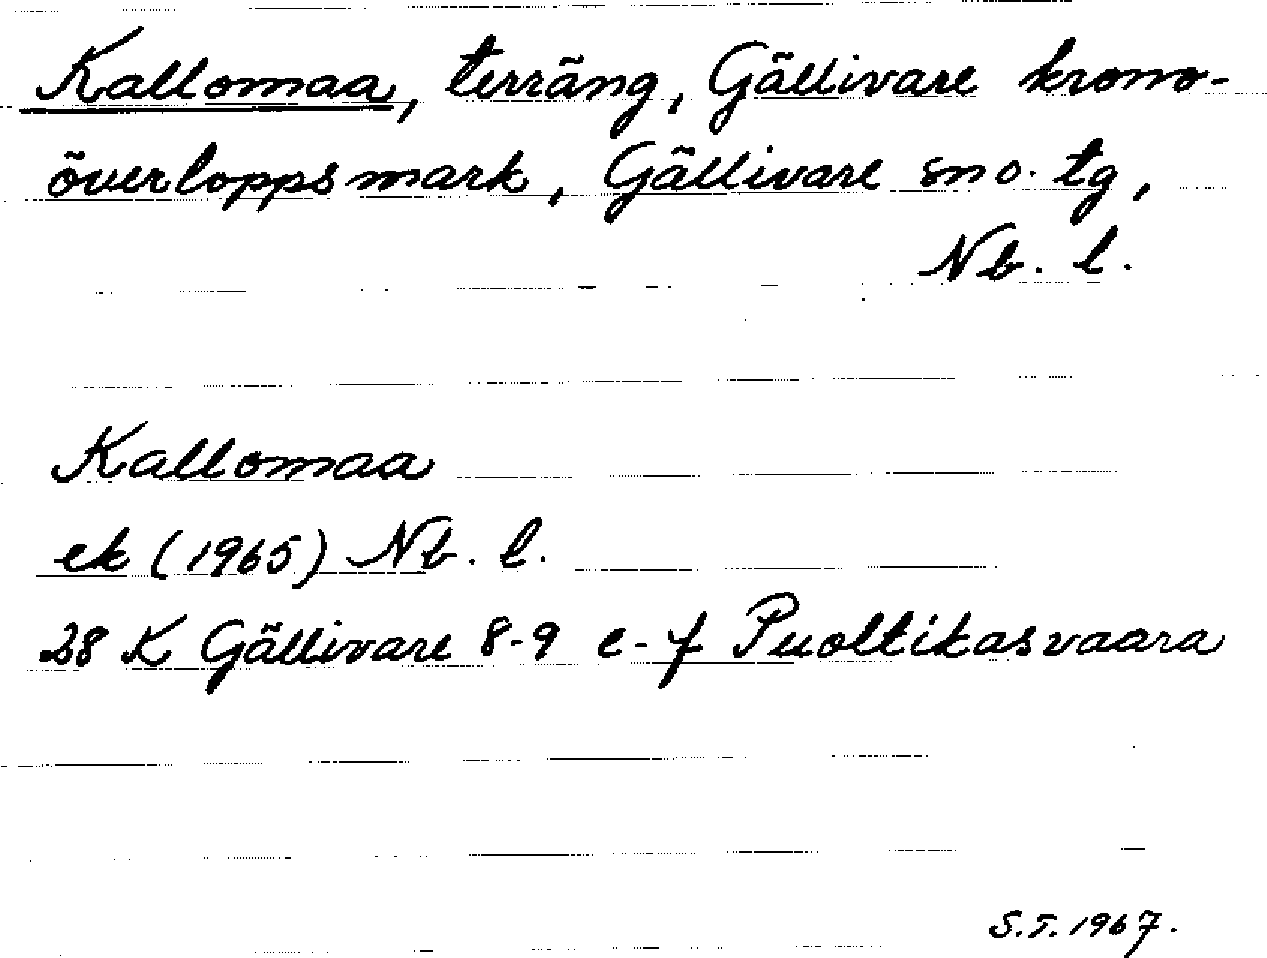 Kallomaa, terräng, Gällivare krono-
överloppsmark, Gällivare sn o. tg,
Nb. l.
Kallomaa
ek (1965) Nb. l.
28 K Gällivare 8-9 e-f Puoltikasvaara
S.T. 1967.